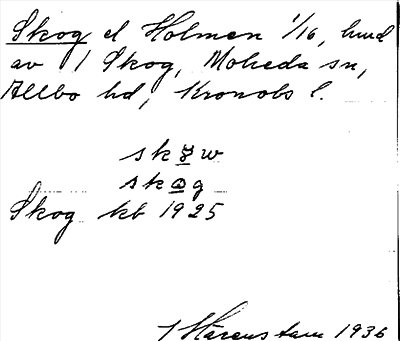 Skog el Holmen 1/16, hmd
av 1 Skog, Moheda sn,
Allbo hd, Kronobs l.
Skog kb 1925
1936